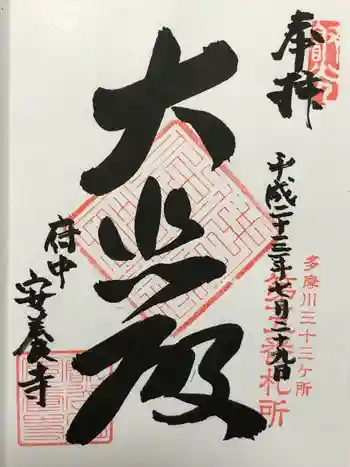 奉拝
平成二十三年七月二十九日
多摩川三十三ヶ所
札所
大悲殿
府中
安養寺